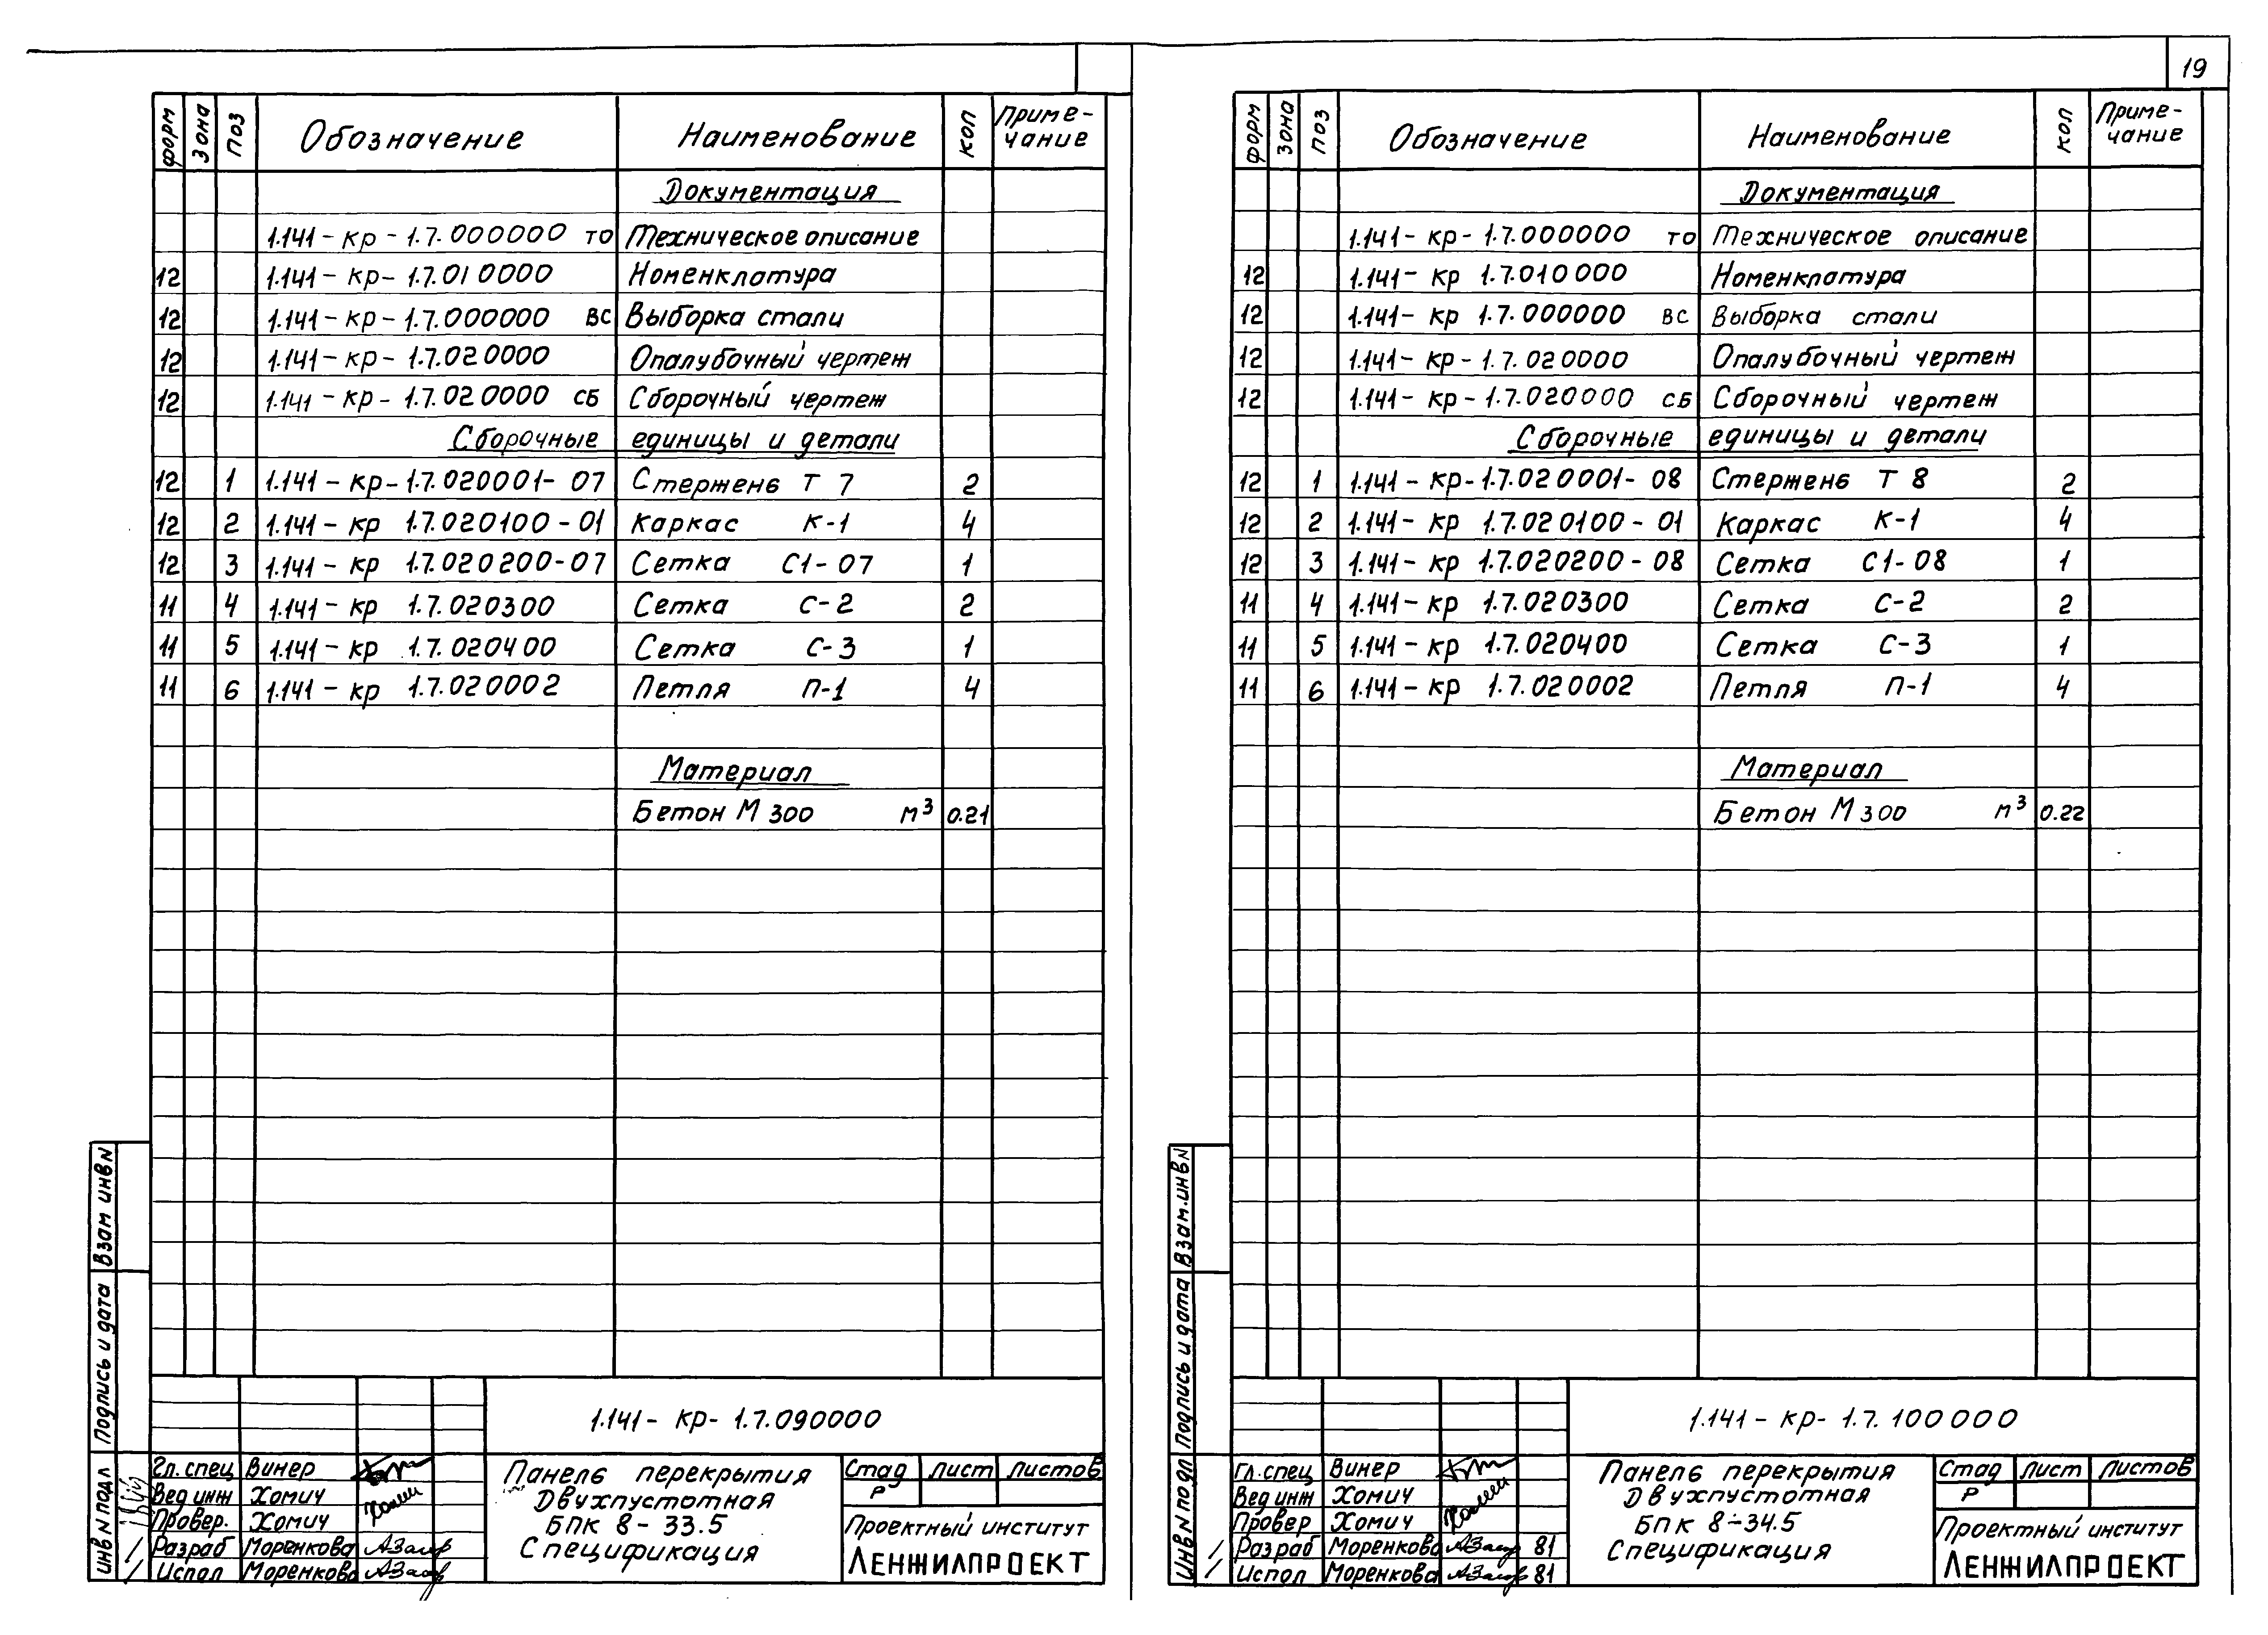 19
форм зона поз Обозначение Наименование кол Приме-чание
Документация
1.141-кр-1.7.000000 ТО Техническое описание
12 1.141-кр-1.7.010000 Номенклатура
12 1.141-кр-1.7.000000 ВС Выборка стали
12 1.141-кр-1.7.020000 Опалубочный чертеж
12 1.141-кр-1.7.020000 СБ Сборочный чертеж
Сборочные единицы и детали
12 1 1.141-кр-1.7.020001-07 Стержень Т 7 2
12 2 1.141-кр 1.7.020100-01 Каркас К-1 4
12 3 1.141-кр 1.7.020200-07 Сетка С1-07 1
11 4 1.141-кр 1.7.020300 Сетка С-2 2
11 5 1.141-кр 1.7.020400 Сетка С-3 1
11 6 1.141-кр 1.7.020002 Петля П-1 4
Материал
Бетон М 300 м³ 0.21
Взам инв N
Подпись и дата
Инв N подл
1.141-кр-1.7.090000
Гл. спец Винер
Вед инж Хомич
Провер. Хомич
Разраб Моренкова
Испол Моренкова
Панель перекрытия
Двухпустотная
БПК 8-33.5
Спецификация
Стад Лист Листов
Р
Проектный институт
ЛЕНЖИЛПРОЕКТ
форм зона поз Обозначение Наименование кол Приме-чание
Документация
1.141-кр-1.7.000000 ТО Техническое описание
12 1.141-кр 1.7.010000 Номенклатура
12 1.141-кр 1.7.000000 ВС Выборка стали
12 1.141-кр-1.7.020000 Опалубочный чертеж
12 1.141-кр-1.7.020000 СБ Сборочный чертеж
Сборочные единицы и детали
12 1 1.141-кр-1.7.020001-08 Стержень Т 8 2
12 2 1.141-кр 1.7.020100-01 Каркас К-1 4
12 3 1.141-кр 1.7.020200-08 Сетка С1-08 1
11 4 1.141-кр 1.7.020300 Сетка С-2 2
11 5 1.141-кр 1.7.020400 Сетка С-3 1
11 6 1.141-кр 1.7.020002 Петля П-1 4
Материал
Бетон М 300 м³ 0.22
Взам. инв N
Подпись и дата
Инв N подл
1.141-кр-1.7.100000
Гл. спец Винер
Вед инж Хомич
Провер Хомич
Разраб Моренкова 81
Испол Моренкова 81
Панель перекрытия
Двухпустотная
БПК 8-34.5
Спецификация
Стад Лист Листов
Р
Проектный институт
ЛЕНЖИЛПРОЕКТ